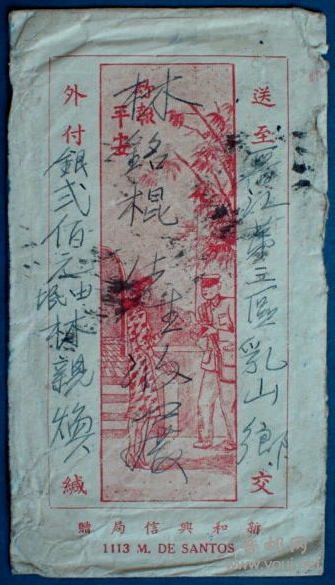 送至晋江第三區乳山鄉交
林銘棍先生收展
平安
外付銀弍佰元由岷林親煥緘
新和興信局贈
1113 M. DE SANTOS